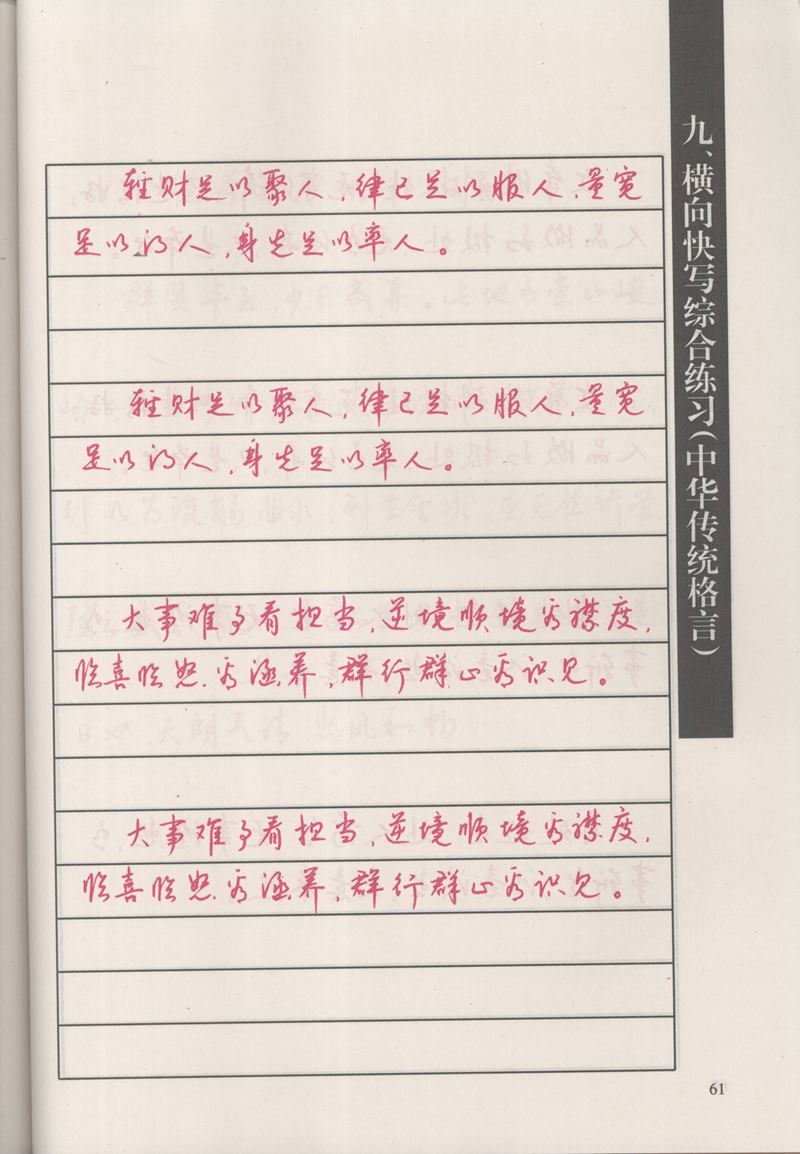 九、横向快写综合练习(中华传统格言)
轻财足以聚人,律己足以服人,量宽
足以得人,身先足以率人。
轻财足以聚人,律己足以服人,量宽
足以得人,身先足以率人。
大事难事看担当,逆境顺境看襟度,
临喜临怒看涵养,群行群止看识见。
大事难事看担当,逆境顺境看襟度,
临喜临怒看涵养,群行群止看识见。
61